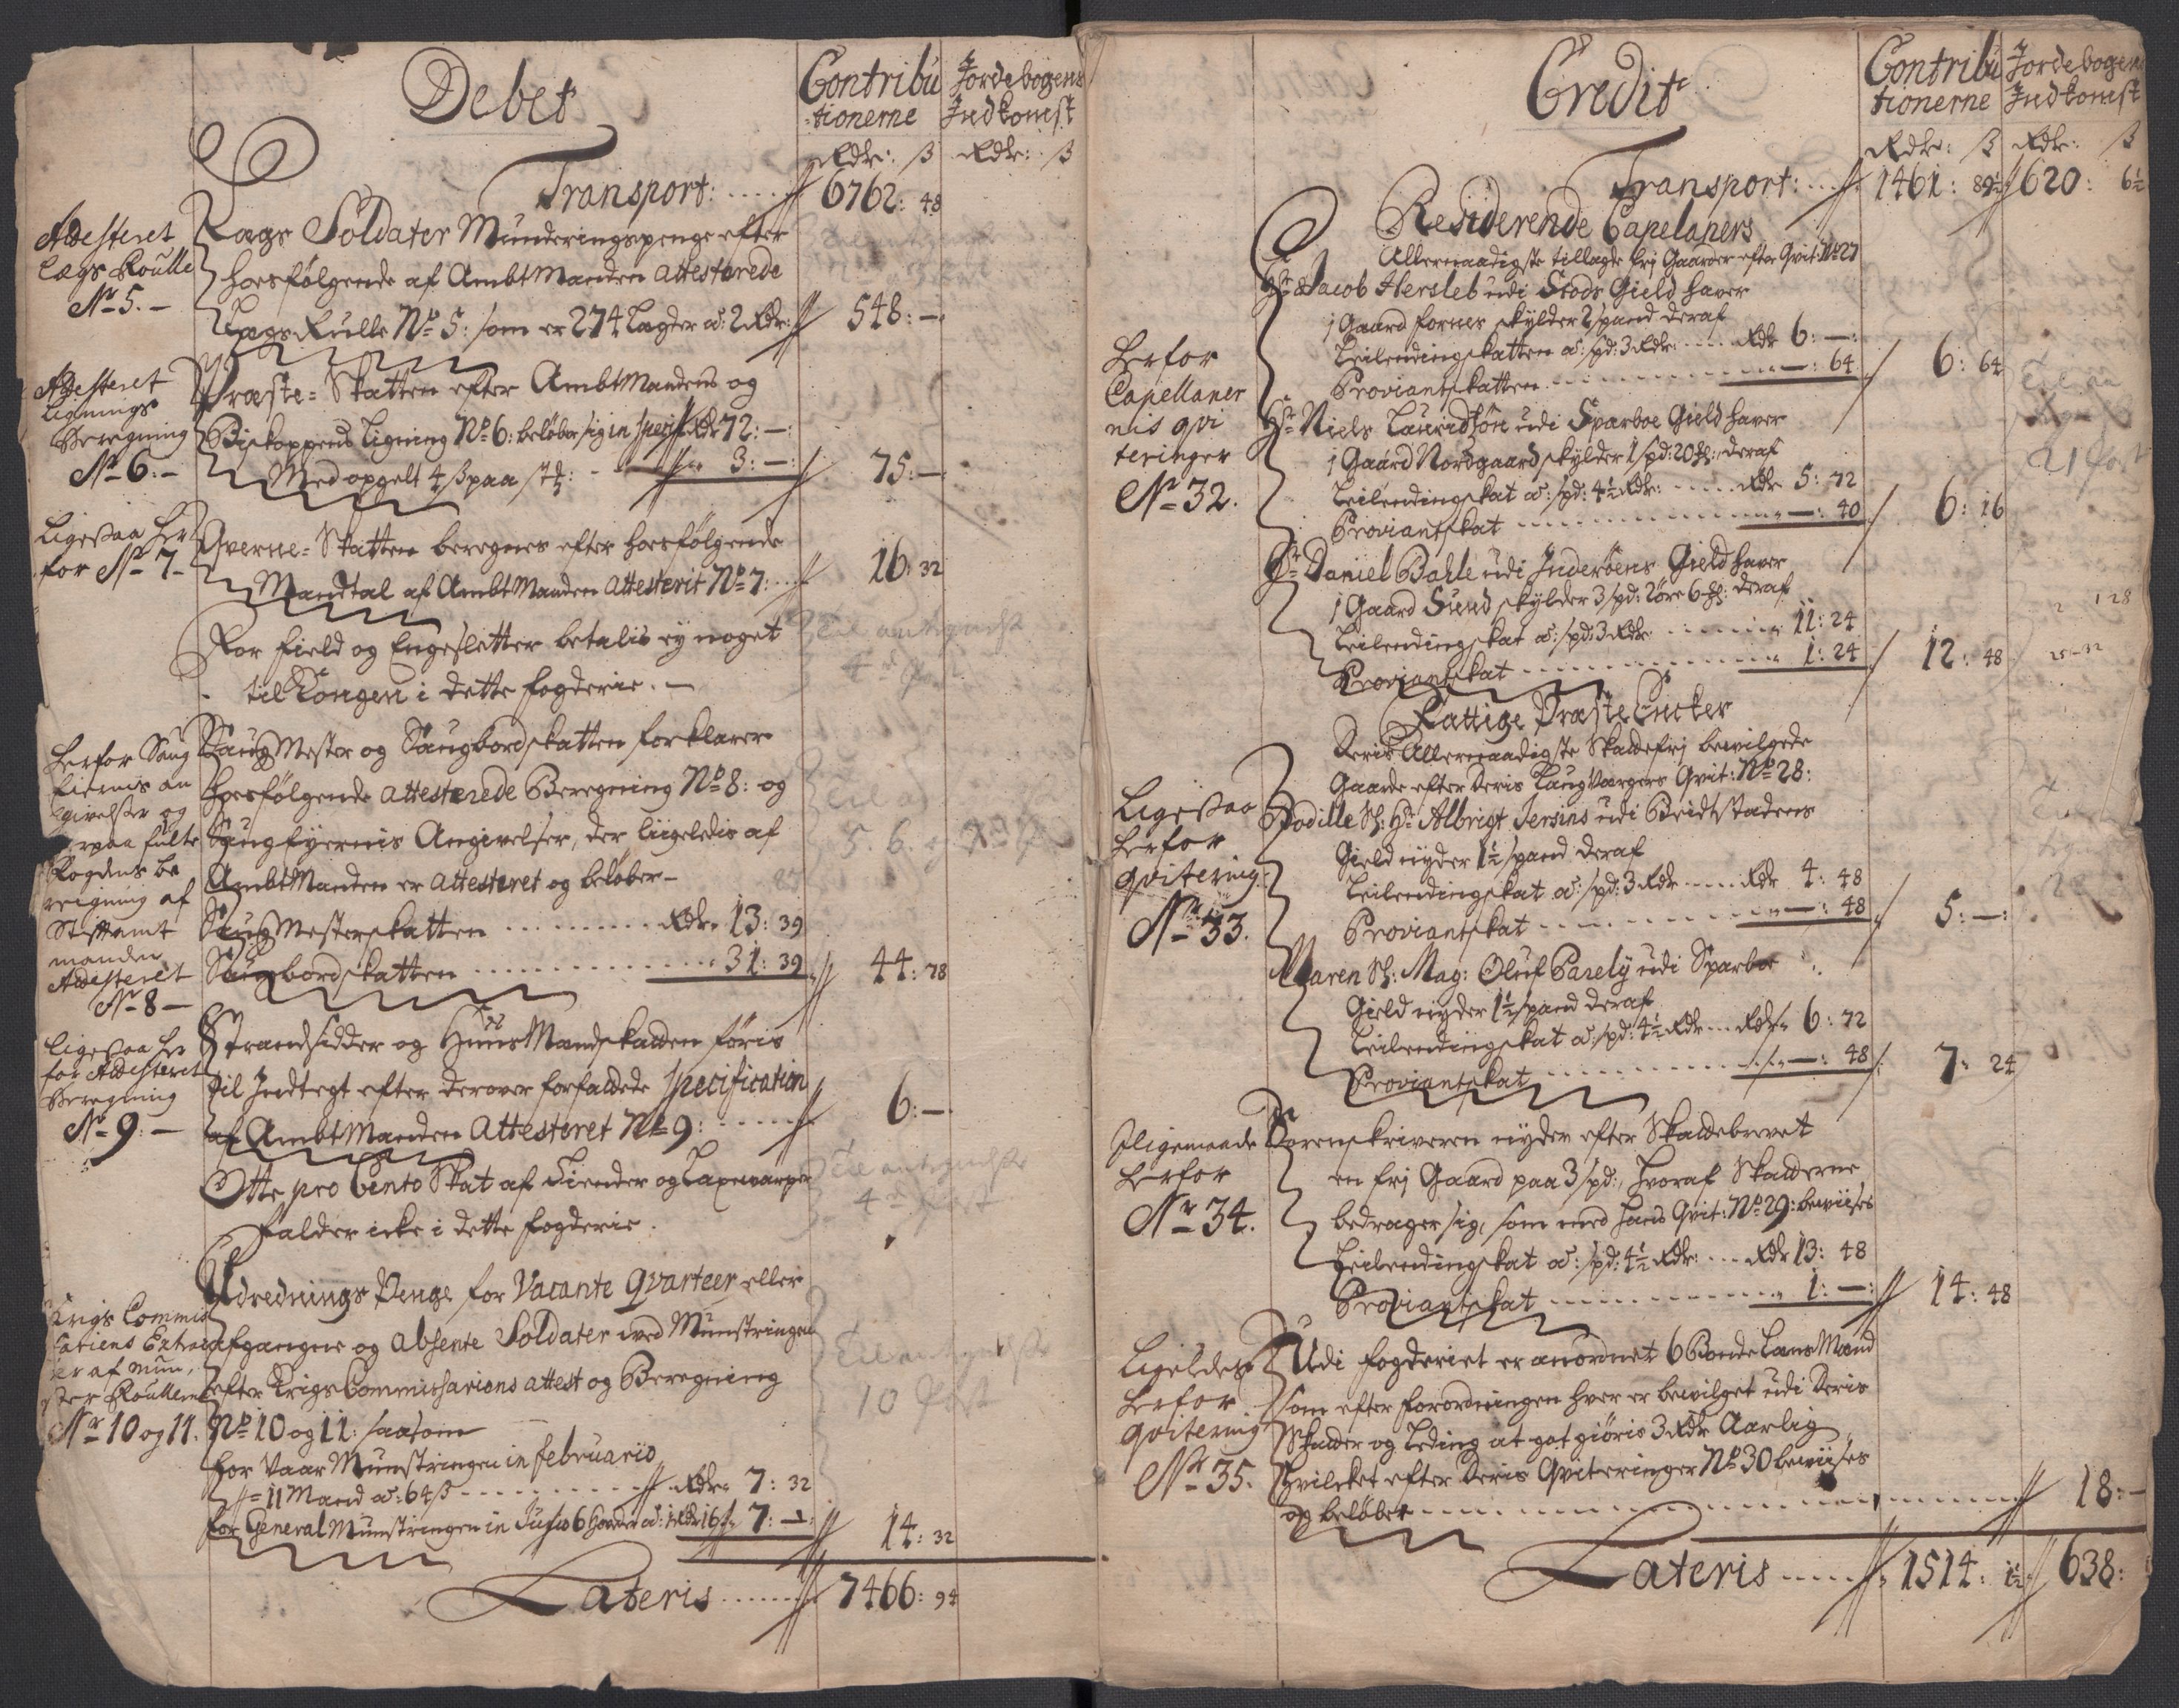 Debet
Contribu
tionerne
Jordebogens
Indkomst
Rdr: ß Rdr: ß
Transport: 6762: 48
Attesteret
Lægs Roulle
No 5.
Lægs Soldater Munderingspenge efter
hosfølgende af AmbtManden attesterede
Lægs Rulle No 5: som er 274 Lægder a: 2 Rdr: 548: —
Attesteret
Lignings
Beregning
No 6: —
Præste-Skatten efter AmbtMandens og
Biskoppens Ligning No 6: beløber sig in specie Rdr 72: —
Med opgelt 4 ß paa 3: — 75: —
Ligesaa her
for No 7
Qverne-Skatten beregnes efter hosfølgende
Mandtal af AmbtManden attesterit No 7: 16: 32
For Field og Engesletter betalis ey noget
til Kongen i dette fogderie. —
Til antegnelse
4de Post
Herfor Saug
Eiernis an
givelser og
paa fulte
Fogdens be
reigning af
Stiftamt
manden
Attesteret
No 8 —
SaugMester og Saugbordskatten forklarer
hosfølgende attesterede Beregning No 8: og
Saugeyernis Angivelser, der liigeledis af
AmbtManden er attesteret og beløber —
SaugMesterskatten Rdr 13: 39
Saugbordskatten 31: 39 44: 78
5. 6. og
Ligesaa her
for Attesteret
Beregning
No 9: —
Strandsidder og HuusMandskatten føris
til Indtegt efter derover forfattede specification
af AmbtManden attesteret No 9: 6: —
Otte pro Cento Skat af Tiender og Laxewarper
falder icke i dette fogderie.
Til antegnelse
4de Post
Krigs Commis
sariens Extract
af mun
ster Roullerne
No 10 og 11.
Udrednings Penge for Vacante Qvarteer eller
afgangne og absente Soldater ved Munstringen
efter Krigs Commissariens attest og Beregning
No 10 og 11: saasom
for Vaar Munstringen in februario
11 Mand a: 64 ß Rdr 7: 32
for General Munstringen in Junio 6 a: 1 Rdr 16 ß 7: — 14: 32
Til antegnelse
10 Post
Lateris 7466: 94
Credit
Contribu
tionerne
Jordebogens
Indkomst
Rdr: ß Rdr: ß
Transport: 1461: 89½ 620: 6½
Residerende Capelaners
Allernaadigste tillagde frj Gaarder efter Qvit: No 27
Herfor
Capellaner
nis qvi
teringer
No 32.
Hr Jacob Hersleb udi Stods Gield haver
1 Gaard Forner skylder 2 spand deraf
Leilendingskatten a: spd: 3 Rdr: Rdr 6: —
Proviantskatten — : 64 6: 64
Hr Niels Lauridsøn udi Sparboe Gield haver
1 Gaard Nordgaard skylder 1 spd: 20 deraf
Leilendingskat a: spd: 4½ Rdr: Rdr 5: 72
Proviantskat — : 40 6: 16
21 Post
Hr Daniel Bahle udi Inderøens Gield haver
1 Gaard Sund skylder 3 spd: 2 øre 6 deraf
Leilendingskat a: spd: 3 Rdr 11: 24
Proviantskat 1: 24 12: 48
Fattige Præste Encker
Deris Allernaadigste Skattefrj bewilgede
Gaarde efter Deris Laugværgers Qvit: No 28:
Ligesaa
herfor
qvitering
No 33.
Bodille Sl: Hr Albrigt Jersins udi Beidstadens
Gield nyder 1½ spand deraf
Leilendingskat a: spd: 3 Rdr Rdr 4: 48
Proviantskat — : 48 5: —
Maren Sl: Mag: Oluf Parely udi Sparboe
Gield nyder 1½ spand deraf
Leilendingskat a: spd: 4½ Rdr Rdr 6: 72
Proviantskat — : 48 7: 24
Iligemaade
herfor
No 34.
Sorenskriveren nyder efter Skattebrevet
en frj Gaard paa 3 spd:, hvoraf Skatterne
bedrager sig, som med hans Qvit: No 29: bewiises
Leilendingskat a: spd: 4½ Rdr: Rdr 13: 48
Proviantskat 1: — 14: 48
Ligeledes
herfor
qvitering
No 35.
Udi fogderiet er anordnet 6 Bonde LænsMænd
som efter forordningen hver er bewilget udi Deris
Skatter og Leding at got giøris 3 Rdr Aarlig
hvilcket efter Deris Qviteringer No 30 bewiises
og beløber 18: —
Lateris 1514: 1½ 638: